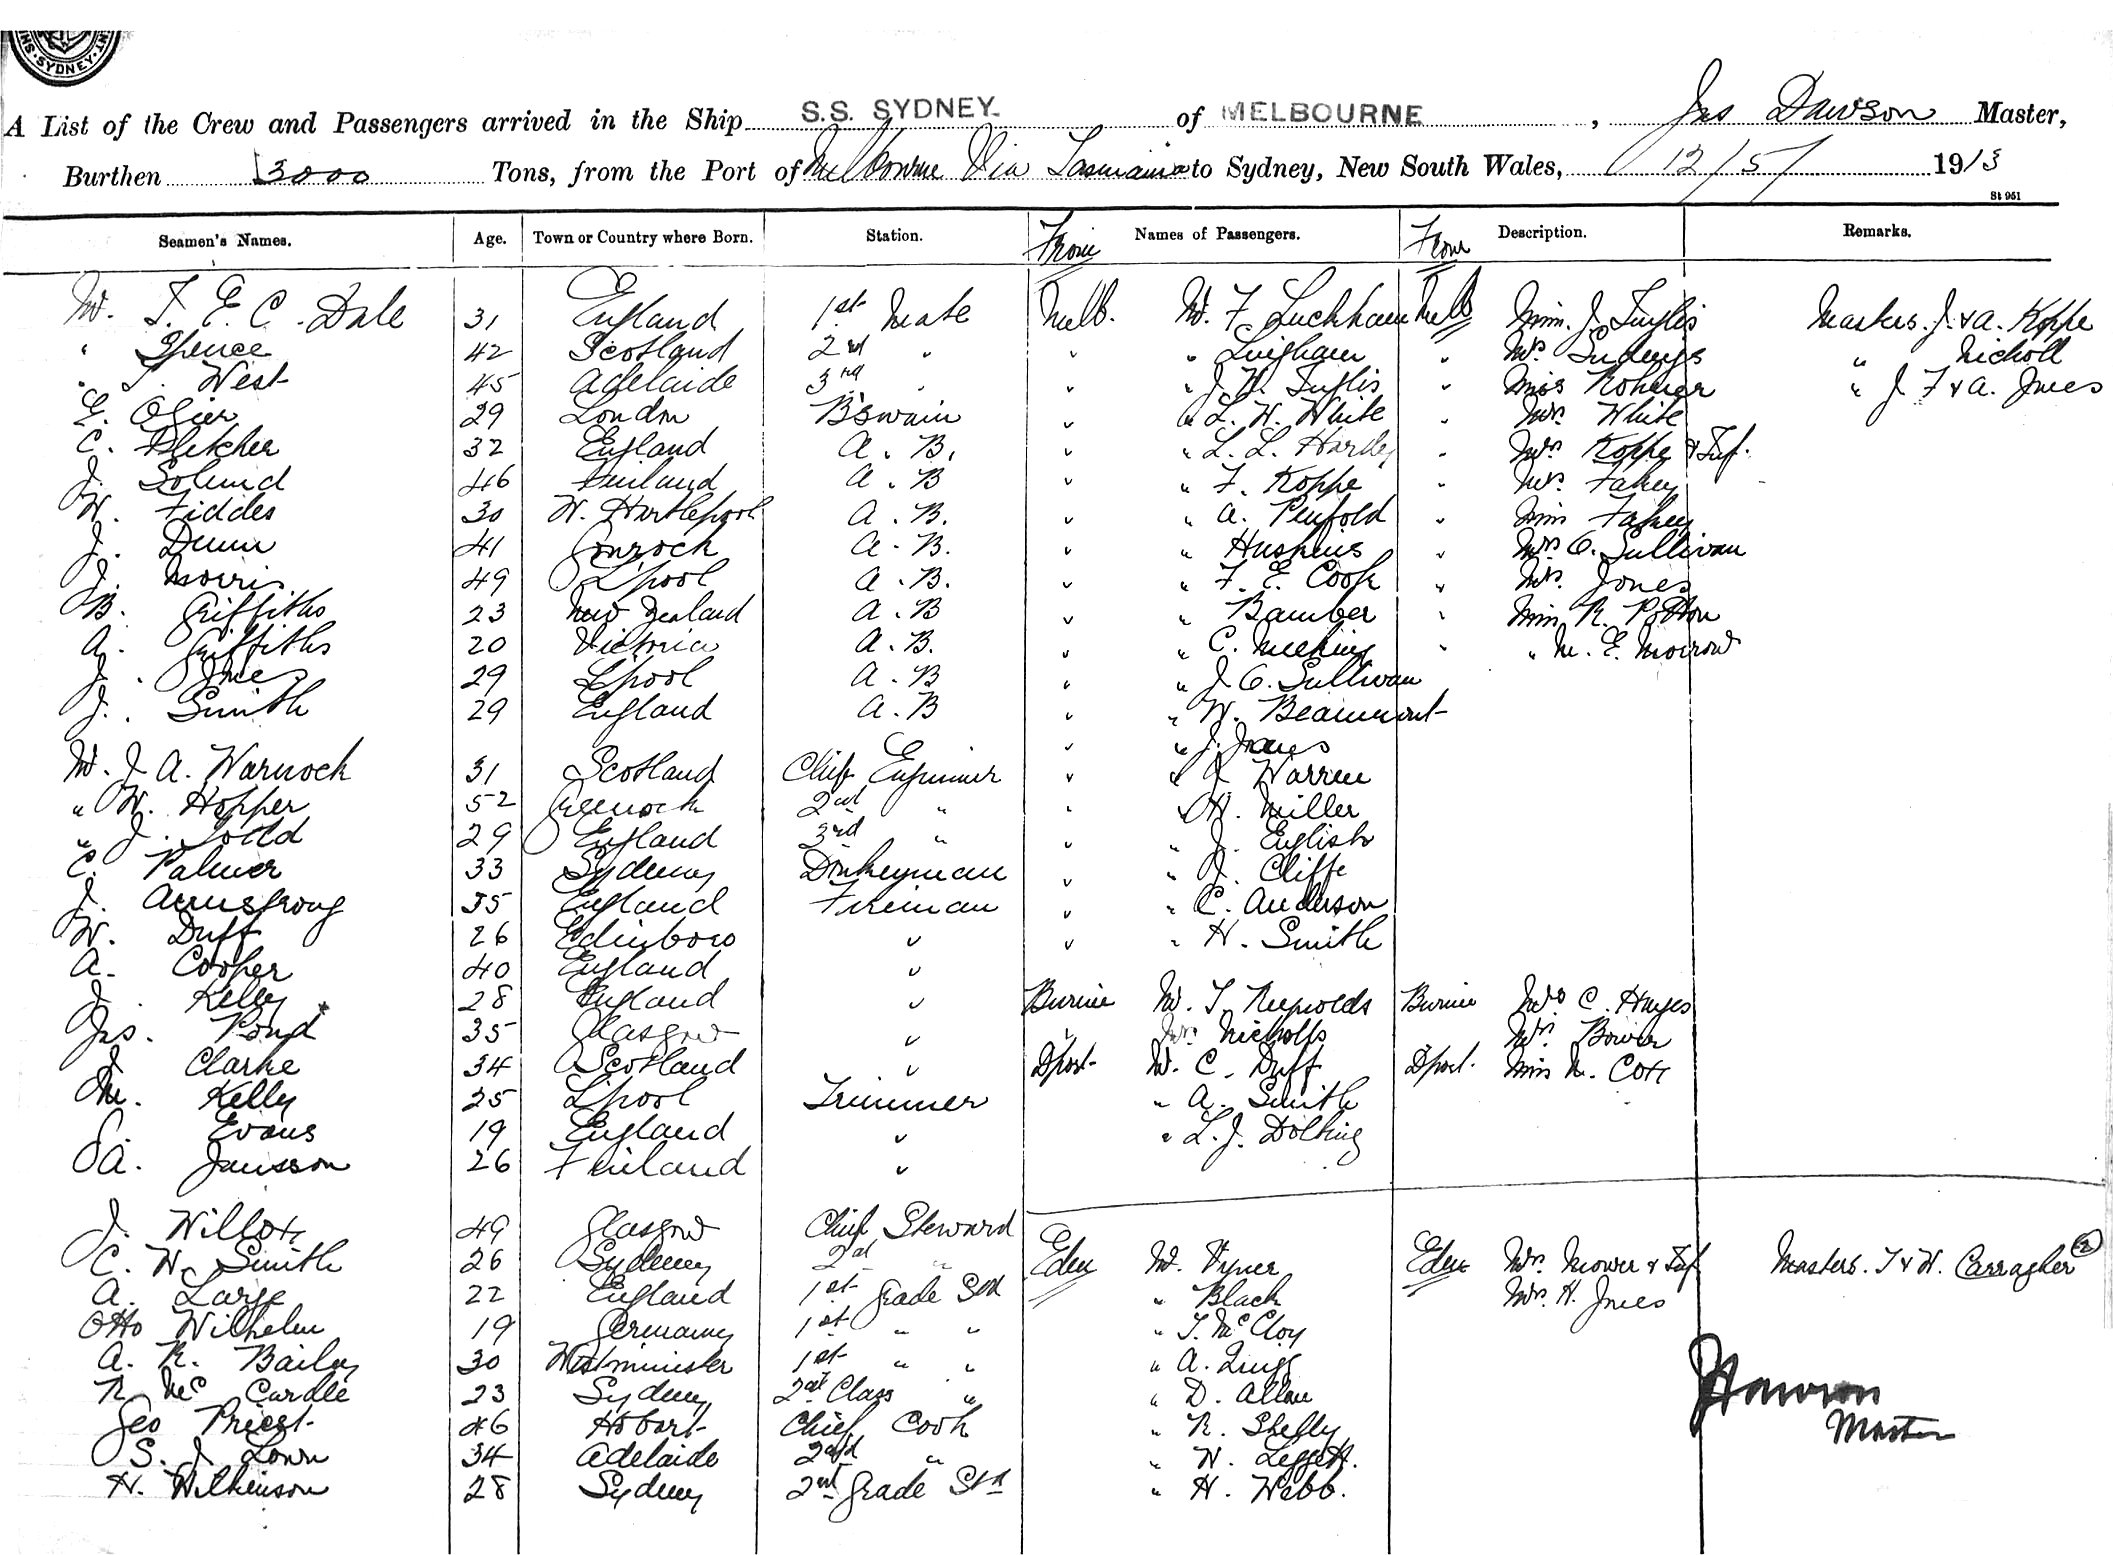 SYDNEY
A List of the Crew and Passengers arrived in the Ship S.S. SYDNEY. of MELBOURNE, Jas Dawson Master,
Burthen 3000 Tons, from the Port of Melbourne Via Tasmania to Sydney, New South Wales, 12/5/ 1913
St 951
Seamen's Names. Age. Town or Country where Born. Station. From Names of Passengers. From Description. Remarks.
Mr. T. E. C. Dale 31 England 1st Mate Melb. Mr. F. Luckham Melb Miss. J. Inglis Masters. J. & A. Koppe
" Spence 42 Scotland 2nd " " " Lingham " Mrs. " Nicholl
" T. West 45 Adelaide 3rd " " " J. W. Inglis " Miss Rohmer " J. F & A. Jones
E. Ozier 29 London B'swain " " L. W. White " Mrs. White
C. Fletcher 32 England A. B. " " L. L. Hartley " Mrs. Koppe & Inf.
J. Solund 46 Finland A. B " " F. Koppe " Mrs. Fahey
W. Fiddes 30 W. Hartlepool A. B. " " A. Penfold " Miss Fahey
J. Dunn 41 A. B. " " Huskins " Mrs O. Sullivan
J. Morris 49 L'pool A. B. " " F. E. Cook " Mrs. Jones
B. Griffiths 23 New Zealand A. B " " Bamber " Miss R. Potton
A. Griffiths 20 Victoria A. B. " " C. Meeking " " M. E. Morrow
J. Jones 29 L'pool A. B " " J. O. Sullivan
J. Smith 29 England A. B " " W. Beaumont
" " J. Jones
Mr. J. A. Warnock 31 Scotland Chief Engineer " " J. Warren
" W. Hopper 52 Greenock 2nd " " " W. Miller
" J. Todd 29 England 3rd " " " J. English
C. Palmer 33 Sydney Donkeyman " " J. Cliffe
J. Armstrong 35 England Fireman " " C. Anderson
W. Duff 26 Edinboro " " " H. Smith
A. Cooper 40 England "
J. Kelly 28 England " Burnie Mr. T. Reynolds Burnie Mrs C. Hayes
Jas. Pond 35 Glasgow " " Mrs. Nicholls Mrs. Bower
J. Clarke 34 Scotland " Dport. Mr. C. Duff Dport. Miss M. Cox
M. Kelly 25 L'pool Trimmer " A. Smith
Evans 19 England " " L. J. Dolbing
A. Jansson 26 Finland "
J. Willox 49 Glasgow Chief Steward
C. W. Smith 26 Sydney 2nd " Eden Mr. Eden Mrs. Mower & Inf Masters. T & W. Carragher (2)
A. Large 22 England 1st Grade Std " Black Mrs. H. Jones
Otto Wilhelm 19 Germany 1st " " " T. McCloy
A. R. Bailey 30 Westminister 1st " " " A. Quigg
R. McCardle 23 Sydney 2nd Class " " D. Allan
Geo Priest 46 Hobart Chief Cook " R. Shelly
S. J. Lown 34 Adelaide 2nd " " W. Leggett.
H. Wilkinson 28 Sydney 2nd Grade Std " H. Webb.
J Dawson
Master